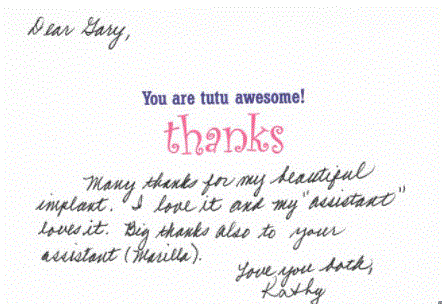 Dear Gary,
You are tutu awesome!
thanks
Many thanks for my beautiful
implant. I love it and my "assistant"
loves it. Big thanks also to your
assistant (Marilla).
Love you both,
Kathy